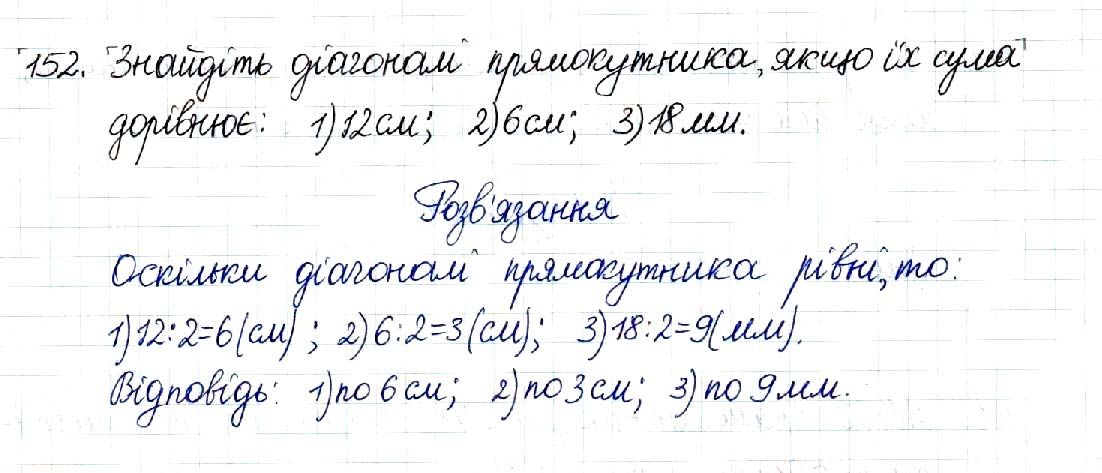 152. Знайдіть діагоналі прямокутника, якщо їх сума
дорівнює: 1) 12 см; 2) 6 см; 3) 18 мм.
Розв'язання
Оскільки діагоналі прямокутника рівні, то:
1) 12:2=6 (см); 2) 6:2=3 (см); 3) 18:2=9 (мм).
Відповідь: 1) по 6 см; 2) по 3 см; 3) по 9 мм.